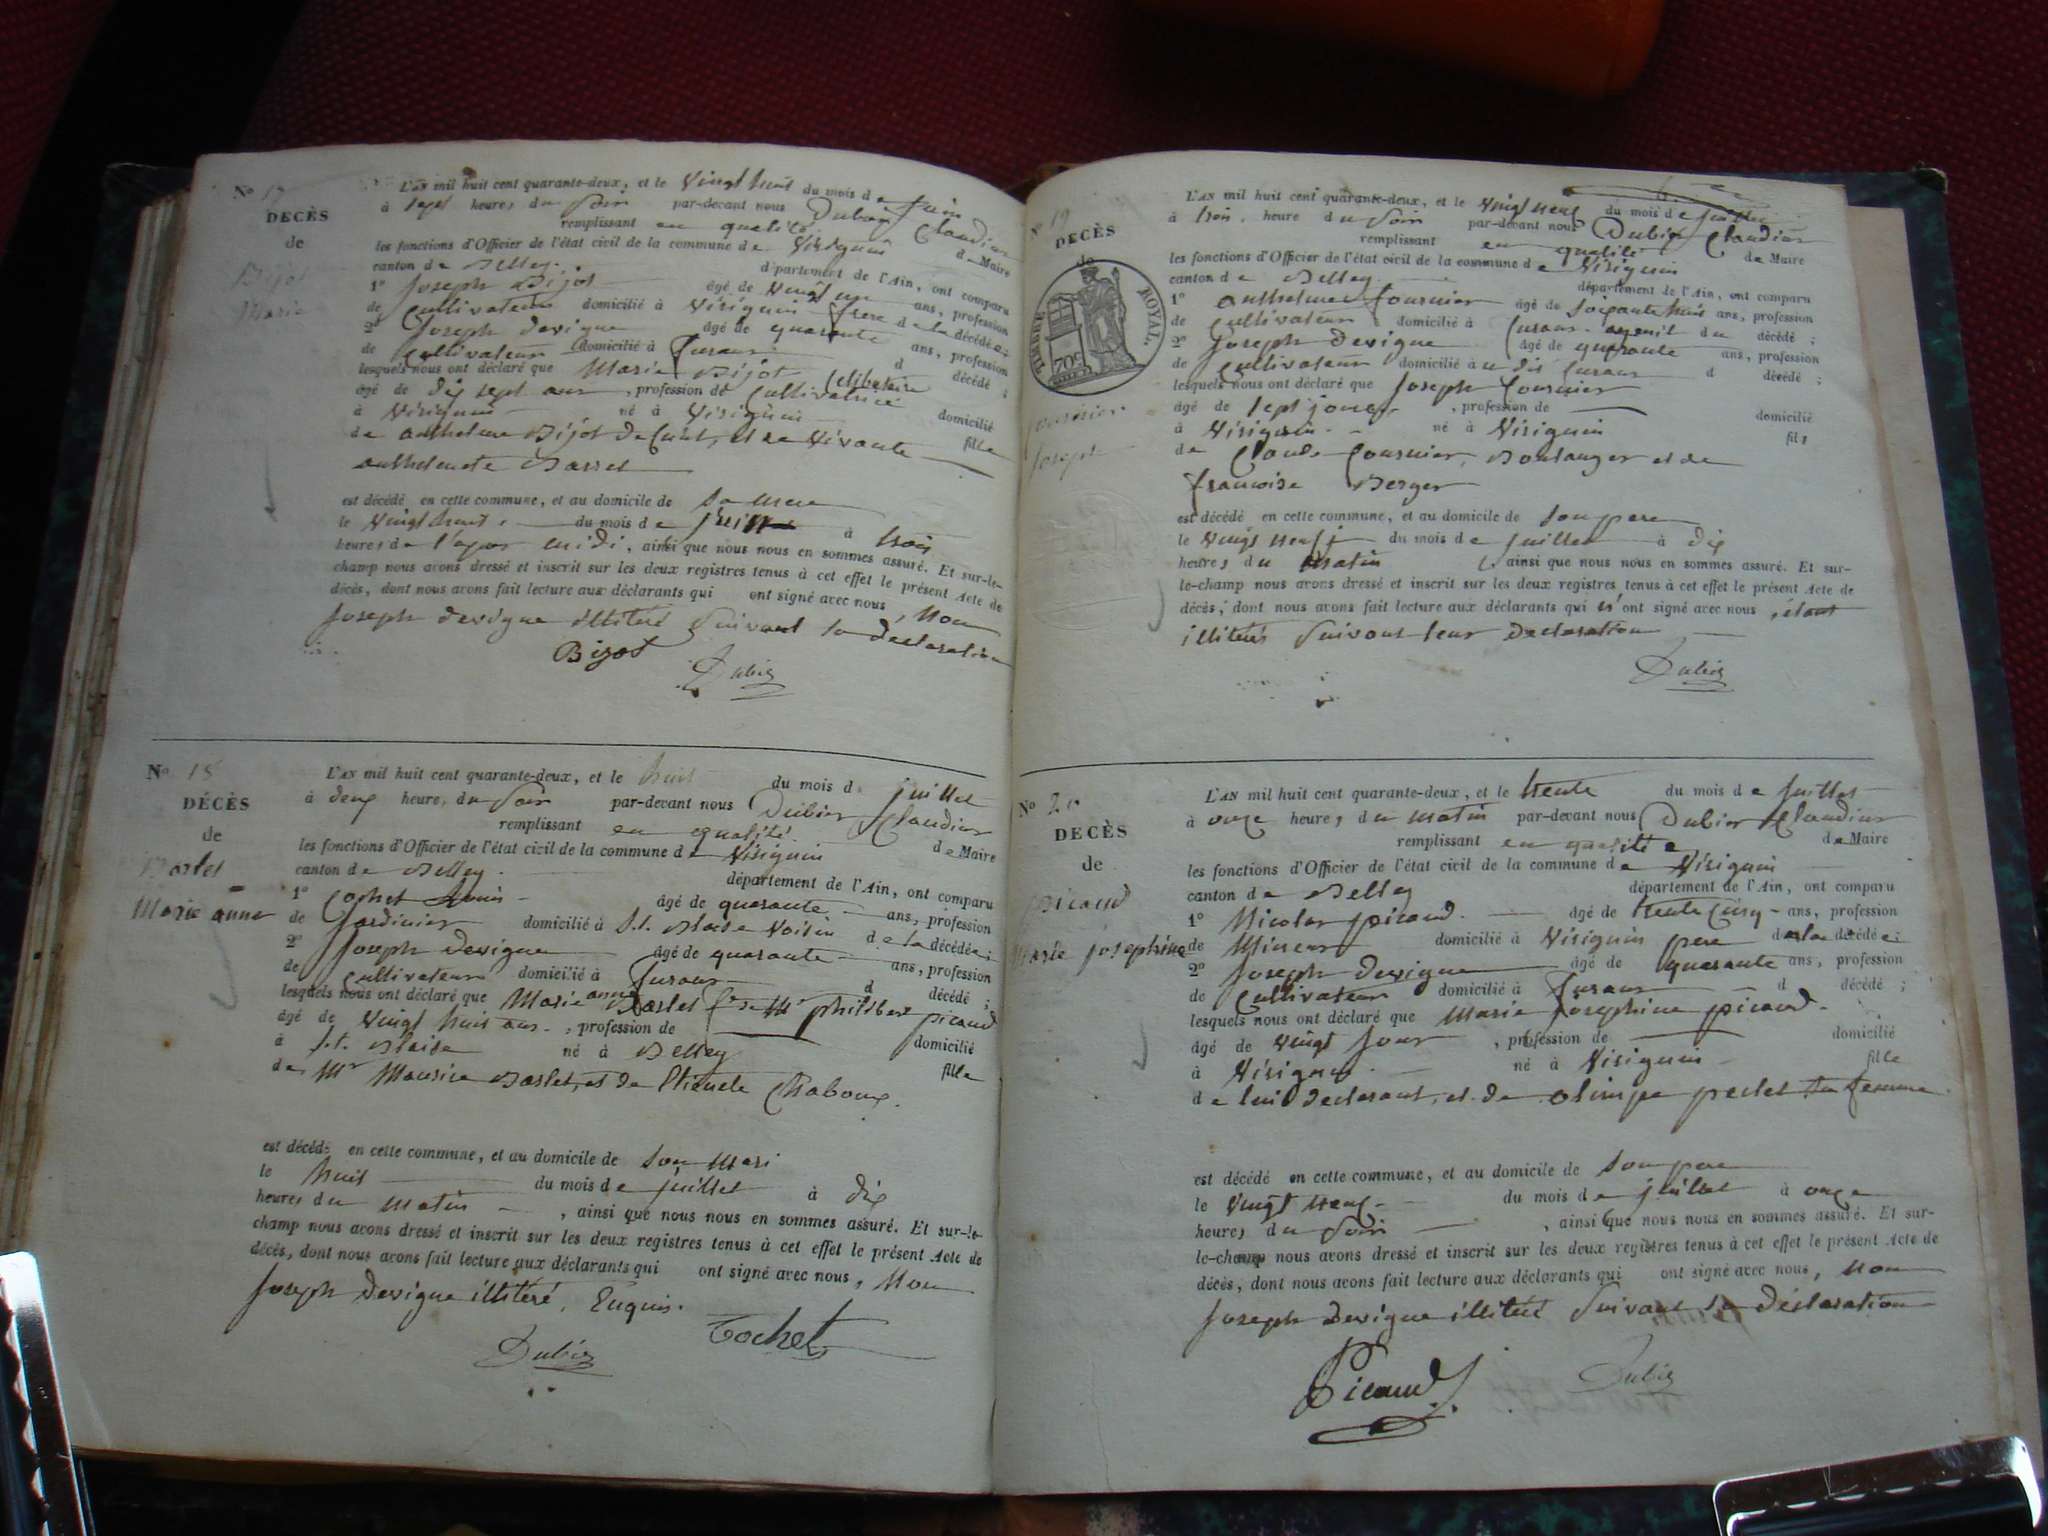 No 17
DECÈS
de
Bijot
Marie
L'AN mil huit cent quarante-deux, et le vingt huit du mois de juin
à sept heures du soir par-devant nous Dubier Claudius
remplissant en qualité de Maire
les fonctions d'Officier de l'état civil de la commune de Virignin
canton de Belley département de l'Ain, ont comparu
1° Joseph Bijot âgé de vingt un ans, profession
de cultivateur domicilié à Virignin frère de la décédée;
2° Joseph Devigne âgé de quarante ans, profession
de cultivateur domicilié à d décédé;
lesquels nous ont déclaré que Marie Bijot Célibataire
âgé de dix sept ans, profession de Cultivatrice domicilié
à Virignin né à Virignin fille
de anthelme Bijot défunt, et de vivante
anthelmete
est décédé en cette commune, et au domicile de sa mere
le vingt huit du mois de juin à trois
heures de l'apres midi, ainsi que nous nous en sommes assuré. Et sur-le-
champ nous avons dressé et inscrit sur les deux registres tenus à cet effet le présent Acte de
décès, dont nous avons fait lecture aux déclarants qui ont signé avec nous, Non
Joseph devigne illitéré suivant sa déclaration
Bijot
Dubier
No 18
DÉCÈS
de
Marie anne
L'AN mil huit cent quarante-deux, et le huit du mois de juillet
à deux heures du soir par-devant nous Dubier Claudius
remplissant en qualité de Maire
les fonctions d'Officier de l'état civil de la commune de Virignin
canton de Belley département de l'Ain, ont comparu
1° Cochet Louis âgé de quarante ans, profession
de Jardinier domicilié à St. Blaise Voisin de la décédée;
2° Joseph Devigne âgé de quarante ans, profession
de Cultivateur domicilié à d décédé;
lesquels nous ont déclaré que Marie anne fe de Mr philibert picaud
âgé de vingt huit ans, profession de domicilié
à St. Blaise né à Belley fille
de Mr Maurice et de Etienete Chaboux.
est décédé en cette commune, et au domicile de son mari
le huit du mois de juillet à dix
heures du matin, ainsi que nous nous en sommes assuré. Et sur-le-
champ nous avons dressé et inscrit sur les deux registres tenus à cet effet le présent Acte de
décès, dont nous avons fait lecture aux déclarants qui ont signé avec nous, Non
Joseph Devigne illitéré, Enquis.
Cochet
Dubier
No 19
DECÈS
de
TIMBRE ROYAL.
70c
fournier
Joseph
L'AN mil huit cent quarante-deux, et le vingt neuf du mois de juillet
à trois heure du soir par-devant nous Dubier Claudius
remplissant en qualité de Maire
les fonctions d'Officier de l'état civil de la commune de Virignin
canton de Belley département de l'Ain, ont comparu
1° anthelme fournier âgé de soixante huit ans, profession
de cultivateur domicilié à du décédé;
2° Joseph Devigne âgé de quarante ans, profession
de cultivateur domicilié au dit d décédé;
lesquels nous ont déclaré que Joseph fournier
âgé de sept jours, profession de domicilié
à Virignin né à Virignin fils
de Claude fournier, Boulanger et de
françoise Berger
est décédé en cette commune, et au domicile de son pere
le vingt neuf du mois de juillet à dix
heures du matin, ainsi que nous nous en sommes assuré. Et sur-
le-champ nous avons dressé et inscrit sur les deux registres tenus à cet effet le présent Acte de
décès, dont nous avons fait lecture aux déclarants qui n'ont signé avec nous, étant
illiterés suivant leur declaration
Dubier
No 20
DECÈS
de
picaud
Marie josephine
L'AN mil huit cent quarante-deux, et le trente du mois de juillet
à onze heures du matin par-devant nous Dubier Claudius
remplissant en qualité de Maire
les fonctions d'Officier de l'état civil de la commune de Virignin
canton de Belley département de l'Ain, ont comparu
1° Nicolas picaud âgé de trente cinq ans, profession
de Mineur domicilié à Virignin pere de la décédée;
2° Joseph Devigne âgé de quarante ans, profession
de Cultivateur domicilié à d décédé;
lesquels nous ont déclaré que Marie josephine picaud
âgé de vingt jour, profession de domicilié
à Virignin né à Virignin fille
de lui declarant, et de olimpe peclet sa femme
est décédé en cette commune, et au domicile de son pere
le vingt neuf du mois de juillet à onze
heures du soir, ainsi que nous nous en sommes assuré. Et sur-
le-champ nous avons dressé et inscrit sur les deux registres tenus à cet effet le présent Acte de
décès, dont nous avons fait lecture aux déclarants qui ont signé avec nous, Non
Joseph Devigne illitéré suivant sa déclaration
Picaud
Dubier